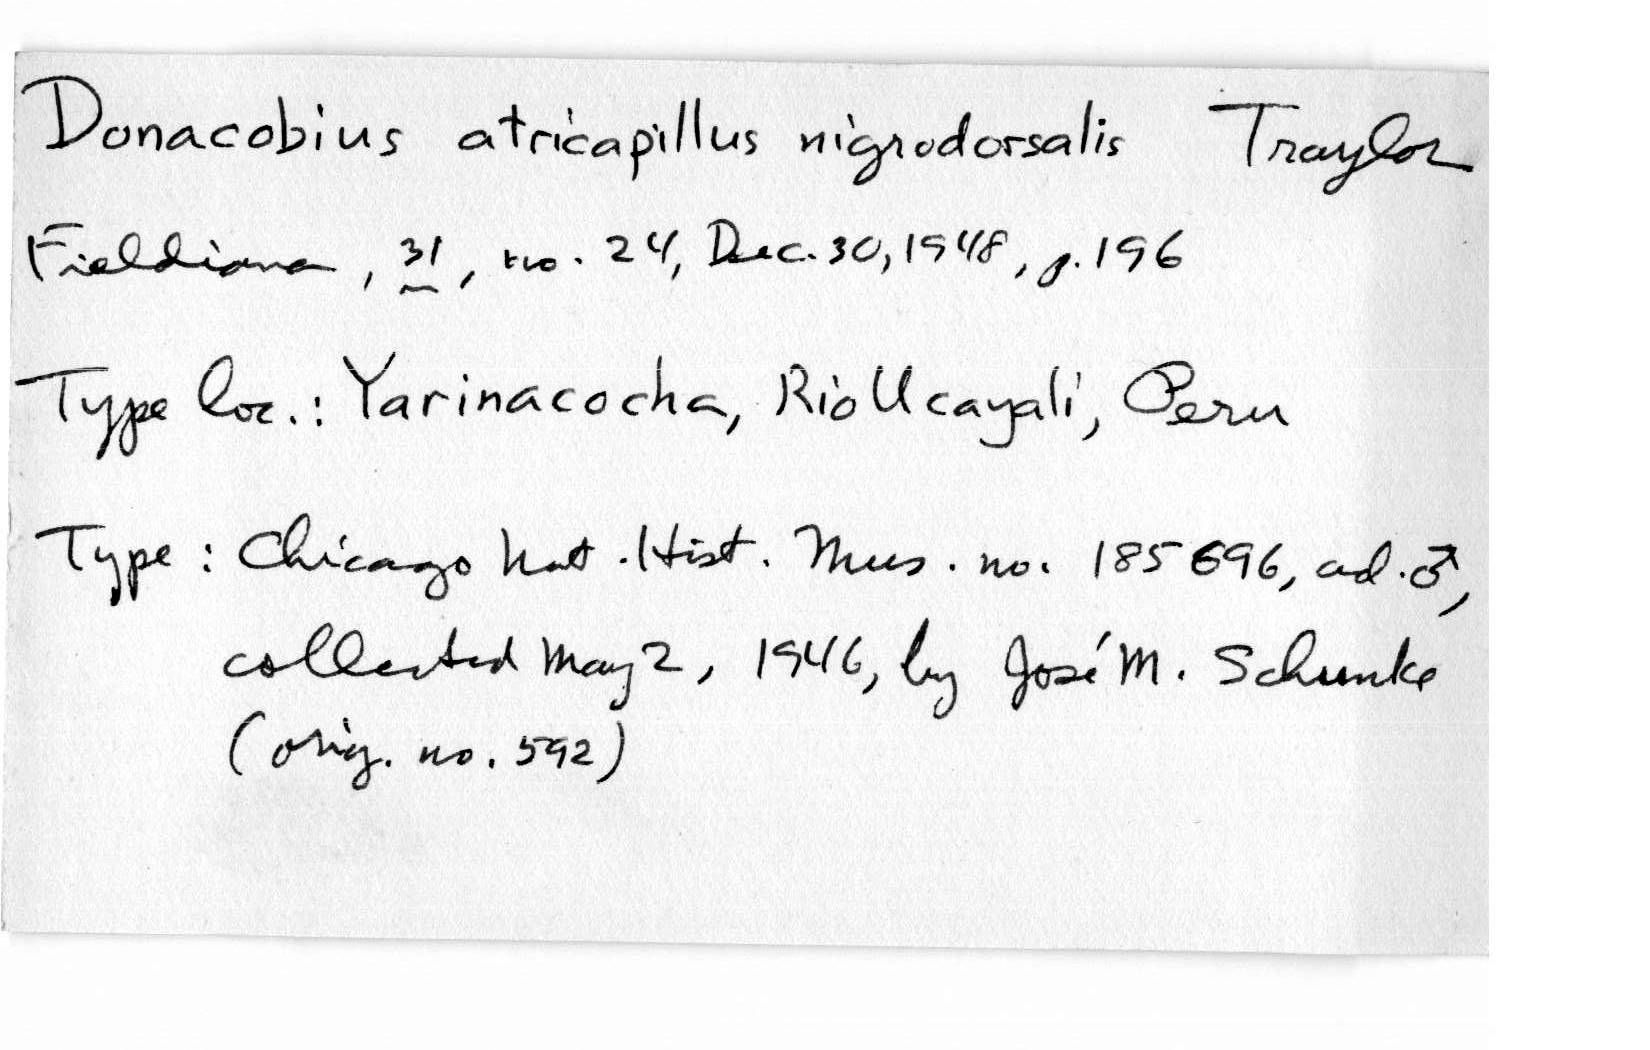 Donacobius atricapillus nigrodorsalis Traylor
Fieldiana, 31, no. 24, Dec. 30, 1948, p. 196
Type loc.: Yarinacocha, Rio Ucayali, Peru
Type: Chicago Nat. Hist. Mus. no. 185696, ad. ♂,
collected May 2, 1946, by José M. Schunke
(orig. no. 592)